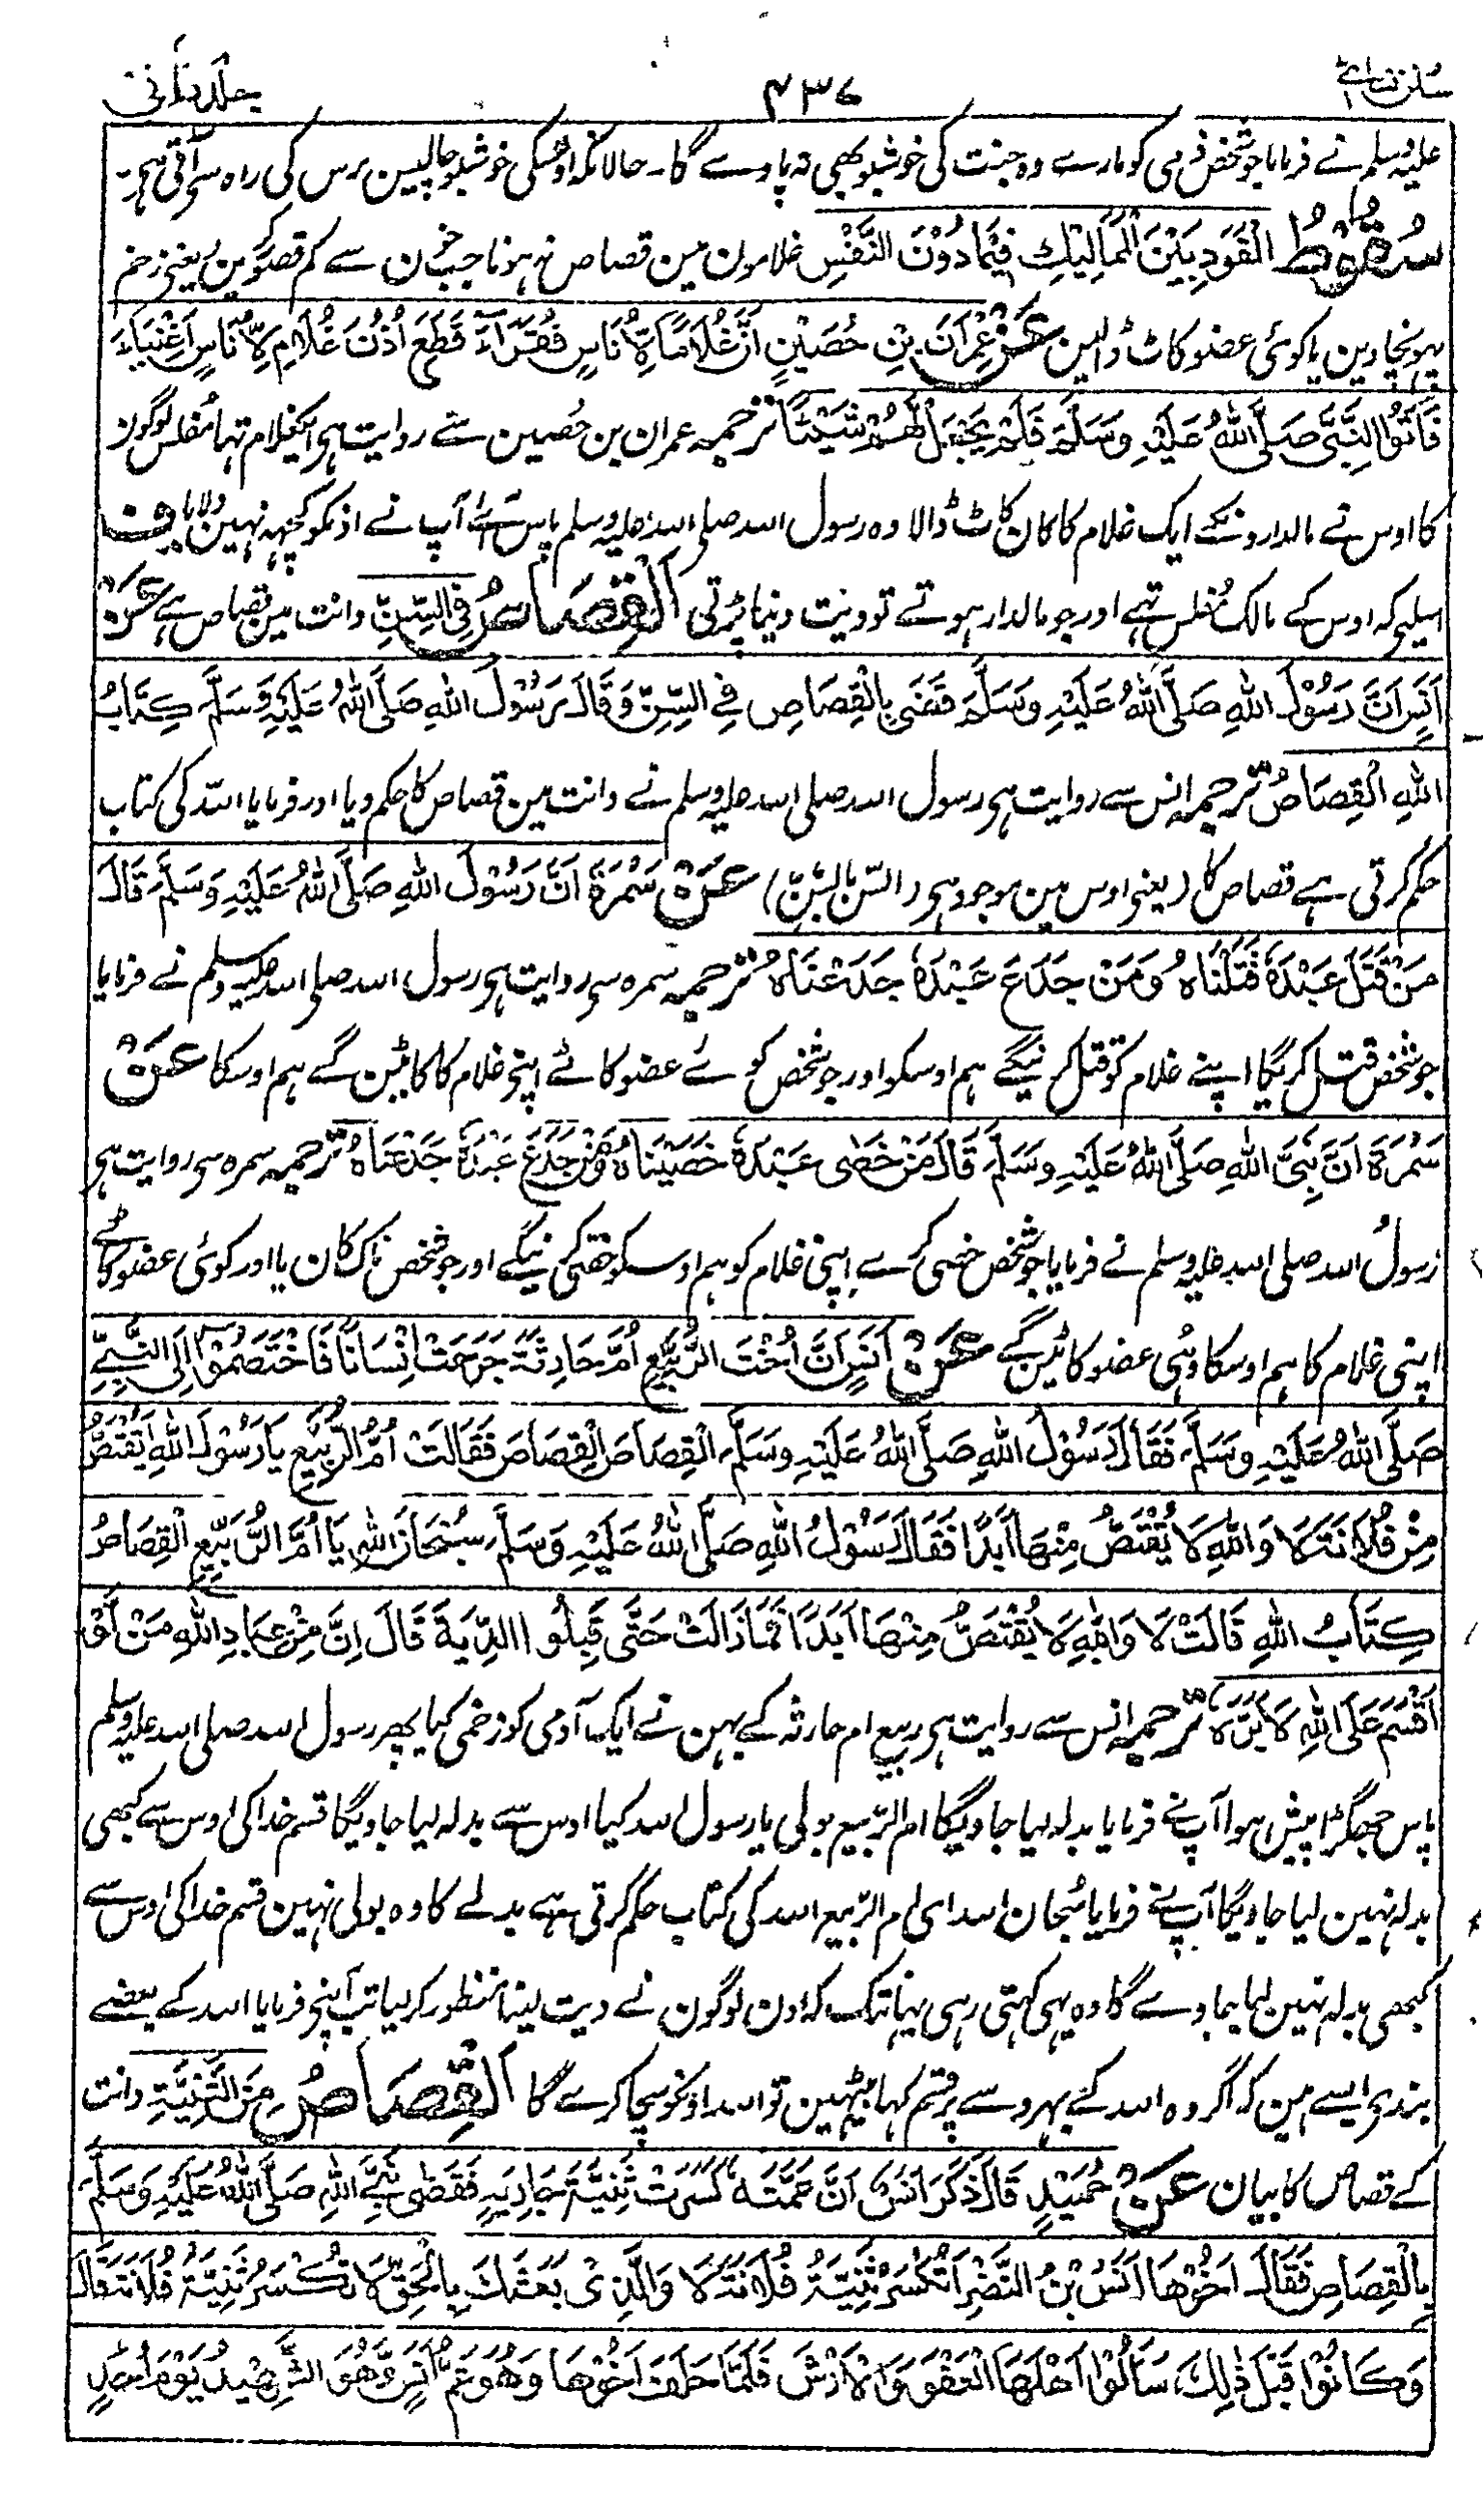 سنن نسائی ۴۳۷ جلد ثانی
علیہ وسلم نے فرمایا جو شخص ذمی کو مارے وہ جنت کی خوشبو بھی نہ پاوے گا۔ حالانکہ اوسکی خوشبو چالیس برس کی راہ سے آتی ہے
سُقُوْطُ الْقَوَدِ بَیْنَ الْمَمَالِیْكِ فِیْمَا دُوْنَ النَّفْسِ غلامون مین قصاص نہ ہونا جب خون سے کم قصور کرین یعنی زخم
پہونچا دین یا کوئی عضو کاٹ ڈالین عَنْ عِمْرَانَ بْنِ حُصَیْنٍ اَنَّ غُلَامًا لِاُنَاسٍ فُقَرَآءَ قَطَعَ اُذُنَ غُلَامٍ لِاُنَاسٍ اَغْنِیَآءَ
فَاَتَوُا النَّبِیَّ صَلَّی اللهُ عَلَیْهِ وَسَلَّمَ فَلَمْ یَجْعَلْ لَهُمْ شَیْئًا ترجمہ عمران بن حُصین سے روایت ہی ایک غلام تہا مُفلس لوگون
کا اوس نے مالدارونکے ایک غلام کا کان کاٹ ڈالا وہ رسول اللہ صلی اللہ علیہ وسلم پاس آے آپ نے اونکو کچہہ نہین دلایا ف
اسلیے کہ اوس کے مالک مُفلس تہے اور جو مالدار ہوتے تو دیت دینا پڑتی اَلْقِصَاصُ فِی السِّنِّ دانت مین قصاص ہے عَنْ
اَنَسٍ اَنَّ رَسُوْلَ اللهِ صَلَّی اللهُ عَلَیْهِ وَسَلَّمَ قَضٰی بِالْقِصَاصِ فِی السِّنِّ وَقَالَ رَسُوْلُ اللهِ صَلَّی اللهُ عَلَیْهِ وَسَلَّمَ كِتَابُ
اللهِ الْقِصَاصُ ترجمہ انس سے روایت ہی رسول اللہ صلی اللہ علیہ وسلم نے دانت مین قصاص کا حکم دیا اور فرمایا اللہ کی کتاب
حکم کرتی ہے قصاص کا (یعنی اوس مین موجود ہی والسّن بالسّنّ) عَنْ سَمُرَةَ اَنَّ رَسُوْلَ اللهِ صَلَّی اللهُ عَلَیْهِ وَسَلَّمَ قَالَ
مَنْ قَتَلَ عَبْدَهٗ قَتَلْنَاهُ وَمَنْ جَدَعَ عَبْدَهٗ جَدَعْنَاهُ ترجمہ سمرہ سے روایت ہی رسول اللہ صلی اللہ علیہ وسلم نے فرمایا
جو شخص قتل کریگا اپنے غلام کو قتل کرینگے ہم اوسکو اور جو شخص کوئے عضو کاٹے اپنے غلام کا کاٹین گے ہم اوسکا عَنْ
سَمُرَةَ اَنَّ نَبِیَّ اللهِ صَلَّی اللهُ عَلَیْهِ وَسَلَّمَ قَالَ مَنْ خَصٰی عَبْدَهٗ خَصَیْنَاهُ وَمَنْ جَدَعَ عَبْدَهٗ جَدَعْنَاهُ ترجمہ سمرہ سے روایت ہی
رسول اللہ صلی اللہ علیہ وسلم نے فرمایا جو شخص خصی کرے اپنی غلام کو ہم اوسکو خصی کرینگے اور جو شخص ناک کان یا اور کوئی عضو کاٹے
اپنی غلام کا ہم اوسکا وہی عضو کاٹین گے عَنْ اَنَسٍ اَنَّ اُخْتَ الرُّبَیِّعِ اُمَّ حَارِثَةَ جَرَحَتْ اِنْسَانًا فَاخْتَصَمُوْا اِلَی النَّبِیِّ
صَلَّی اللهُ عَلَیْهِ وَسَلَّمَ فَقَالَ رَسُوْلُ اللهِ صَلَّی اللهُ عَلَیْهِ وَسَلَّمَ الْقِصَاصَ الْقِصَاصَ فَقَالَتْ اُمُّ الرُّبَیِّعِ یَا رَسُوْلَ اللهِ اَیُقْتَصُّ
مِنْ فُلَانَةَ لَا وَاللهِ لَا یُقْتَصُّ مِنْهَا اَبَدًا فَقَالَ رَسُوْلُ اللهِ صَلَّی اللهُ عَلَیْهِ وَسَلَّمَ سُبْحَانَ اللهِ یَا اُمَّ الرُّبَیِّعِ الْقِصَاصُ
كِتَابُ اللهِ قَالَتْ لَا وَاللهِ لَا یُقْتَصُّ مِنْهَا اَبَدًا فَمَا زَالَتْ حَتّٰی قَبِلُوا الدِّیَةَ قَالَ اِنَّ مِنْ عِبَادِ اللهِ مَنْ لَوْ
اَقْسَمَ عَلَی اللهِ لَاَبَرَّهٗ ترجمہ انس سے روایت ہی ربیع ام حارثہ کے بہن نے ایک آدمی کو زخمی کیا پھر رسول اللہ صلی اللہ علیہ وسلم
پاس جھگڑا پیش ہوا آپنے فرمایا بدلہ لیا جاویگا ام الرّبیع بولی یا رسول اللہ کیا اوس سے بدلہ لیا جاویگا قسم خدا کی اوس سے کبھی
بدلہ نہین لیا جاویگا آپنے فرمایا سُبحان اللہ ای ام الرّبیع اللہ کی کتاب حکم کرتی ہے بدلے کا وہ بولی نہین قسم خدا کی اوس سے
کبھی بدلہ نہین لیا جاوے گا وہ یہی کہتی رہی یہانتک کہ اون لوگون نے دیت لینا منظور کر لیا تب آپنے فرمایا اللہ کے بعضے
بندی ایسے مین کہ اگر وہ اللہ کے بہروسے پر قسم کہا بیٹہین تو اللہ اونکو سچا کرے گا اَلْقِصَاصُ مِنَ الثَّنِیَّةِ دانت
کے قصاص کا بیان عَنْ حُمَیْدٍ قَالَ ذَكَرَ اَنَسٌ اَنَّ عَمَّتَهٗ كَسَرَتْ ثَنِیَّةَ جَارِیَةٍ فَقَضٰی نَبِیُّ اللهِ صَلَّی اللهُ عَلَیْهِ وَسَلَّمَ
بِالْقِصَاصِ فَقَالَ اَخُوْهَا اَنَسُ بْنُ النَّضْرِ اَتُكْسَرُ ثَنِیَّةُ فُلَانَةَ لَا وَالَّذِیْ بَعَثَكَ بِالْحَقِّ لَا تُكْسَرُ ثَنِیَّةُ فُلَانَةَ قَالَ
وَكَانُوْا قَبْلَ ذٰلِكَ سَاَلُوْا اَهْلَهَا الْعَفْوَ وَالْاَرْشَ فَلَمَّا حَلَفَ اَخُوْهَا وَهُوَ عَمُّ اَنَسٍ وَّهُوَ الشَّهِیْدُ یَوْمَ اُحُدٍ